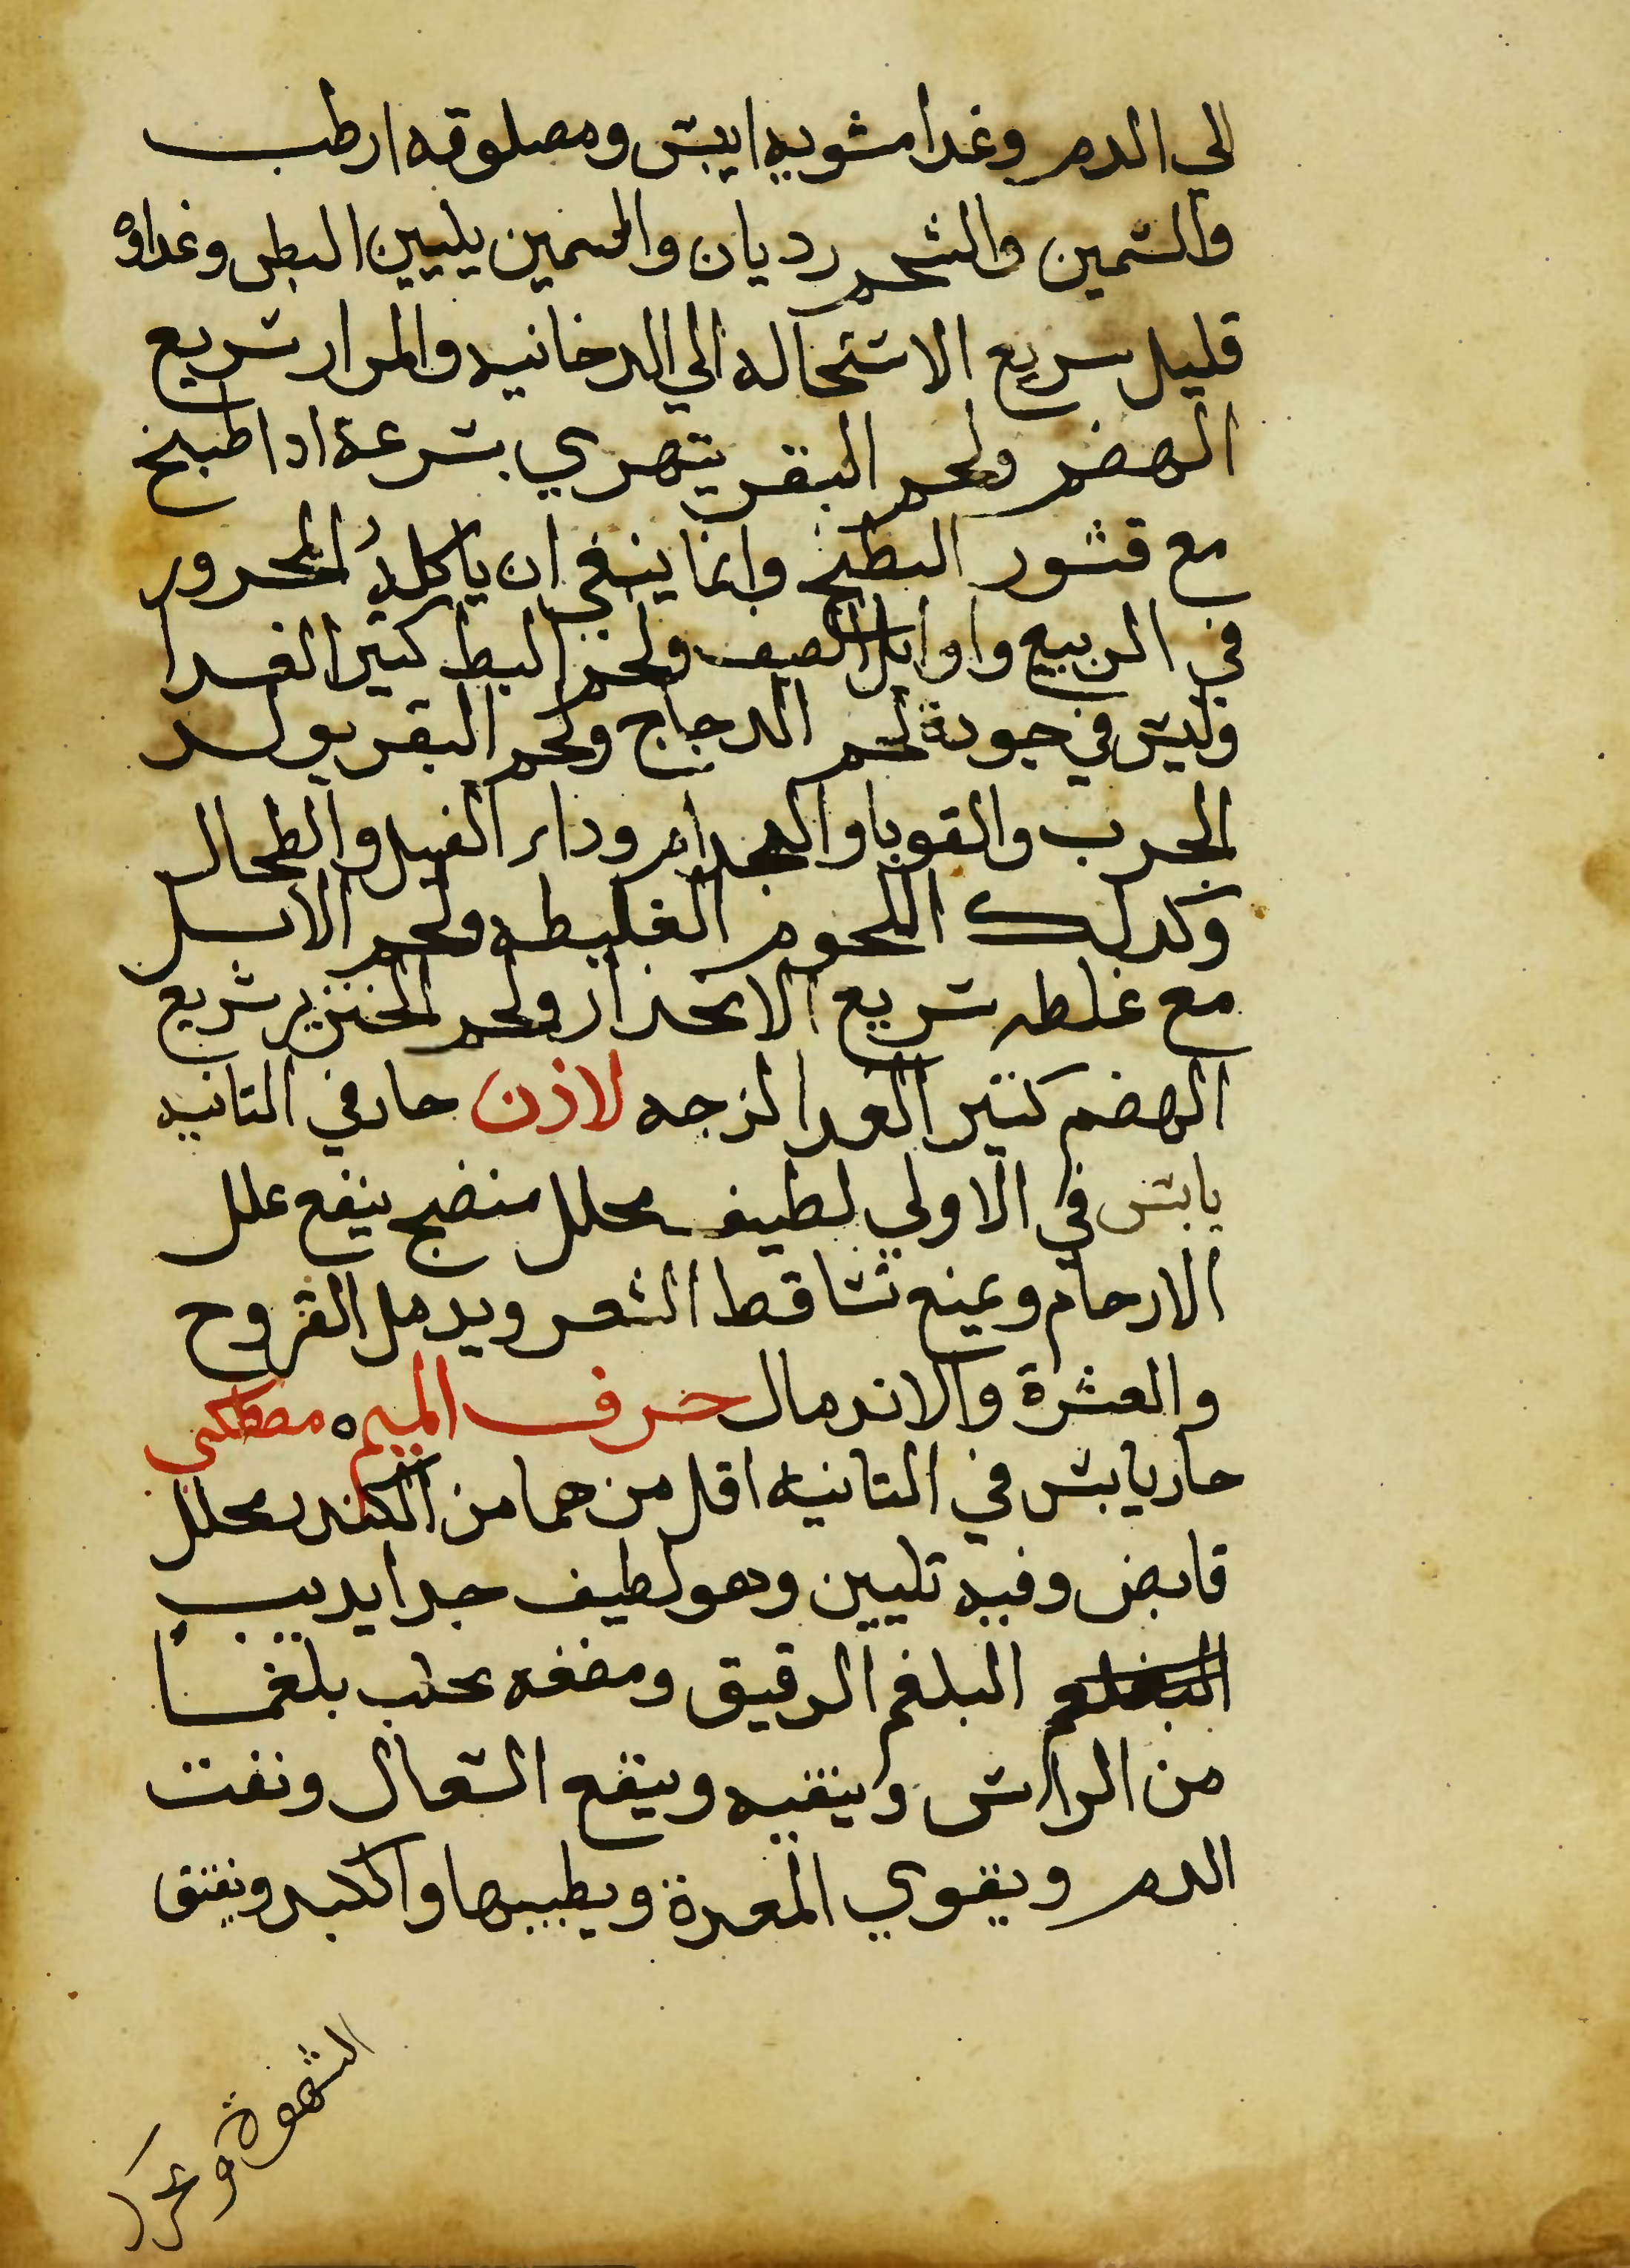 الي الدم وغدا مشويه ايبس ومصلوقه ارطب
والسمين والشحم رديان والسمين يليين البطن وغداوه
قليل سريع الاستحاله الي الدخانيه والمرار سريع
الهضم ولحم البقر يتهري بسرعة ادا طبخ
مع قشور البطيخ وانما ينبغي ان ياكله المحرور
في الربيع واوايل الصيف ولحم البط كثير الغدا
وليس في جودة لحم الدجاج ولحم البقر يولد
الجرب والقوبا والجدام ودا الفيل والطحال
وكدلك اللحوم الغليظه ولحم الابل
مع غلظه سريع الانحدار ولحم الخنزير سريع
الهضم كثير الغدا لزجه لاذن حار في التانيه
يابس في الاولي لطيف محلل منضج ينفع علل
الارحام ويمنع تساقط الشعر ويدمل القروح
والعشرة والاندمال حرف الميم ه مصطكي
حار يابس في التانيه اقل من هما من الكندر محلل
قابض وفيه تليين وهو لطيف جدا يديب
البلغم الرقيق ومضغه يحلب بلغما
من الراس وينقيه وينفع السعال ونفت
الدم ويقوي المعدة ويطيبها والكبد ويفتق
الشهوة ويحرك